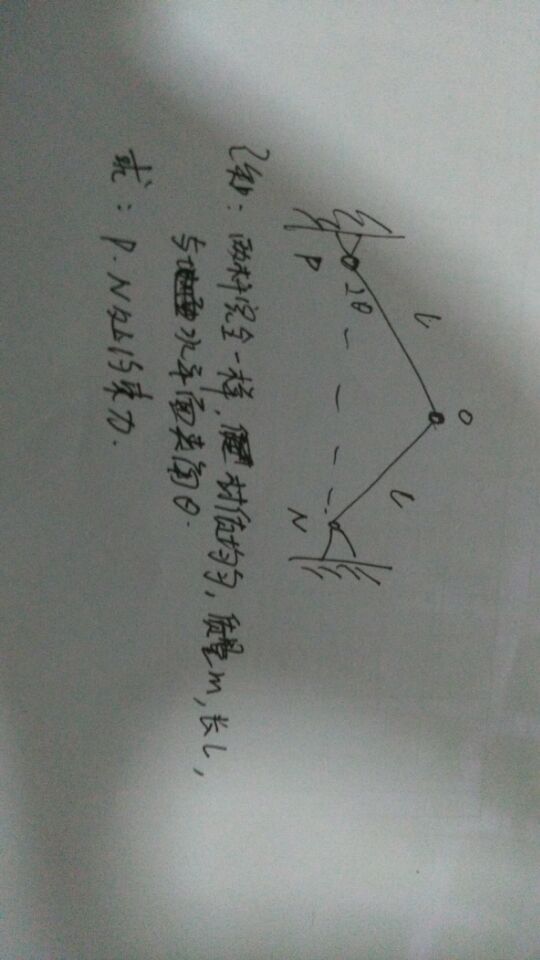 O
l
l
P
θ
N
已知：两杆完全一样，材质均匀，质量m，长l，
与水平面夹角θ.
求：P.N处约束力.